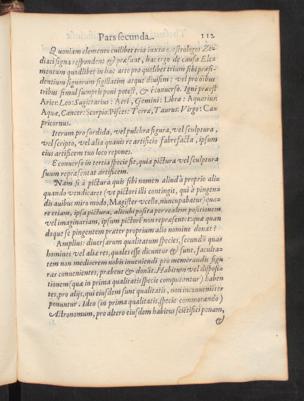 Pars secunda. 112
Quoniam elementa cuilibet tria iuxta astrologos Zo-
diaci signa respondent & præsunt, hac ergo de causa Ele-
mentum quodlibet in hac arte pro quolibet trium sibi præsi-
dentium signorum sigillatim atque diuisim; vel pro oibus
tribus simul sumptis poni potest, & è conuerso. Igni præest
Aries: Leo: Sagittarius: Aeri, Gemini: Libra: Aquarius:
Aquæ, Cancer: Scorpio: Pisces: Terræ, Taurus: Virgo: Ca-
pricornus.
Iterum pro sordida, vel pulchra figura, vel sculptura,
vel scripto, vel alia quauis re artificis fabrefacta, ipsum
eius artificem tuo loco repones.
E conuerso in tertia specie est, quia pictura vel sculptura
suum repræsentat artificem.
Nam si à pictura quis sibi nomen aliud à proprio aliquando
vendicaret (vt pictori illi contingit, qui à pingen
dis auibus miro modo, Magister vcello, nuncupabatur)
etiam, ipsa pictura, alicubi posita per realem positionem
vel imaginariam, ipsum pictorem
se pingentem præter proprium alio nomine donat?
Amplius: diuersarum qualitatum species, secundũ quas
homines vel alia res, quales esse dicuntur & sunt, faculta-
tem non mediocrem nobis inueniendi pro memorandis figu-
ras conuenientes, præbent & donãt. Habitum vel dispositio
tionem (quæ in prima qualitatis specie componuntur) haben
tes, pro alijs, qui eiusdem sunt qualitatis, non inconuenienter
ponuntur. Ideo (in prima qualitatis specie commorando)
Astronomum, pro altero eiusdem habitus scientifici ponam,
&